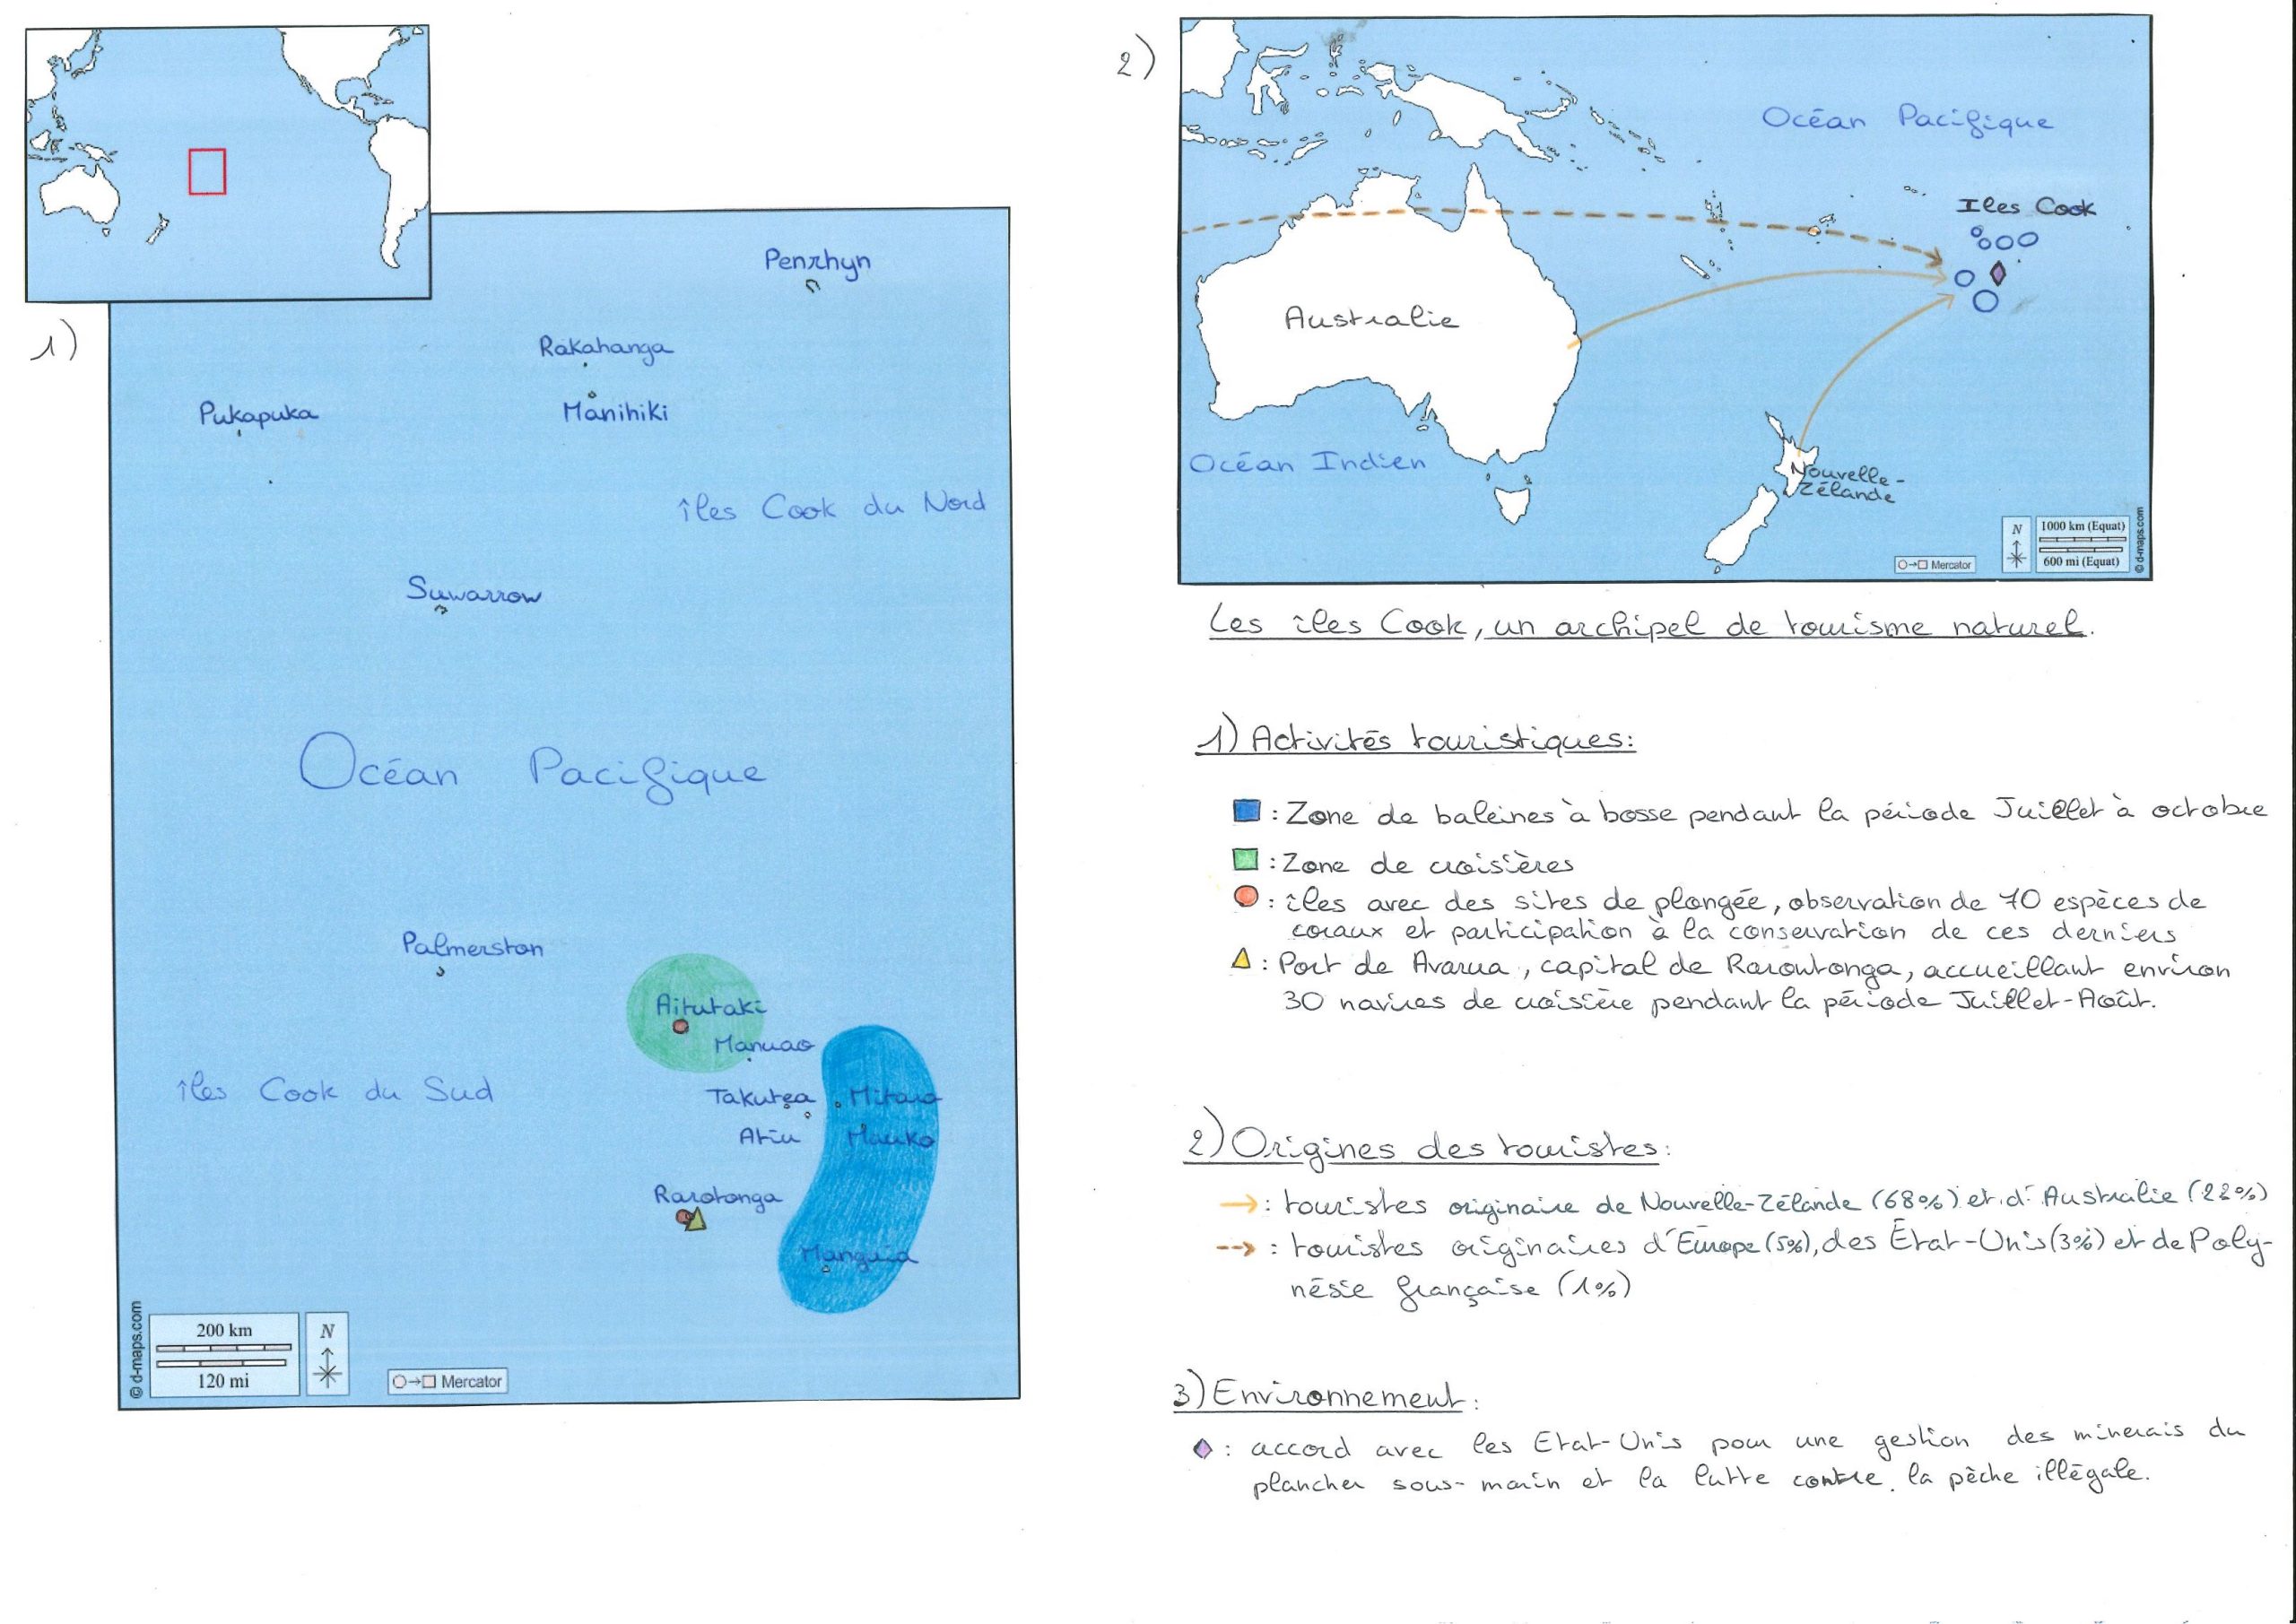 1)
Penrhyn
Rakahanga
Manihiki
Pukapuka
îles Cook du Nord
Suwarrow
Océan Pacifique
Palmerston
Aitutaki
Manuao
îles Cook du Sud
Takutea
Mitaro
Atiu
Mauko
Rarotonga
Manguia
© d-maps.com
200 km
120 mi
N
Mercator
2)
Océan Pacifique
Iles Cook
Australie
Océan Indien
Nouvelle-
Zélande
N
1000 km (Equat)
600 mi (Equat)
Mercator
© d-maps.com
Les îles Cook, un archipel de tourisme naturel.
1) Activités touristiques:
: Zone de baleines à bosse pendant la période Juillet à octobre
: Zone de croisières
: îles avec des sites de plongée, observation de 70 espèces de
coraux et participation à la conservation de ces derniers
: Port de Avarua, capital de Raroutonga, accueillant environ
30 navires de croisière pendant la période Juillet-Août.
2) Origines des touristes:
: touristes originaire de Nouvelle-Zélande (68%) et d'Australie (22%)
: touristes originaires d'Europe (5%), des État-Unis (3%) et de Poly-
nésie française (1%)
3) Environnement:
: accord avec les Etat-Unis pour une gestion des minerais du
plancher sous-marin et la lutte contre la pêche illégale.